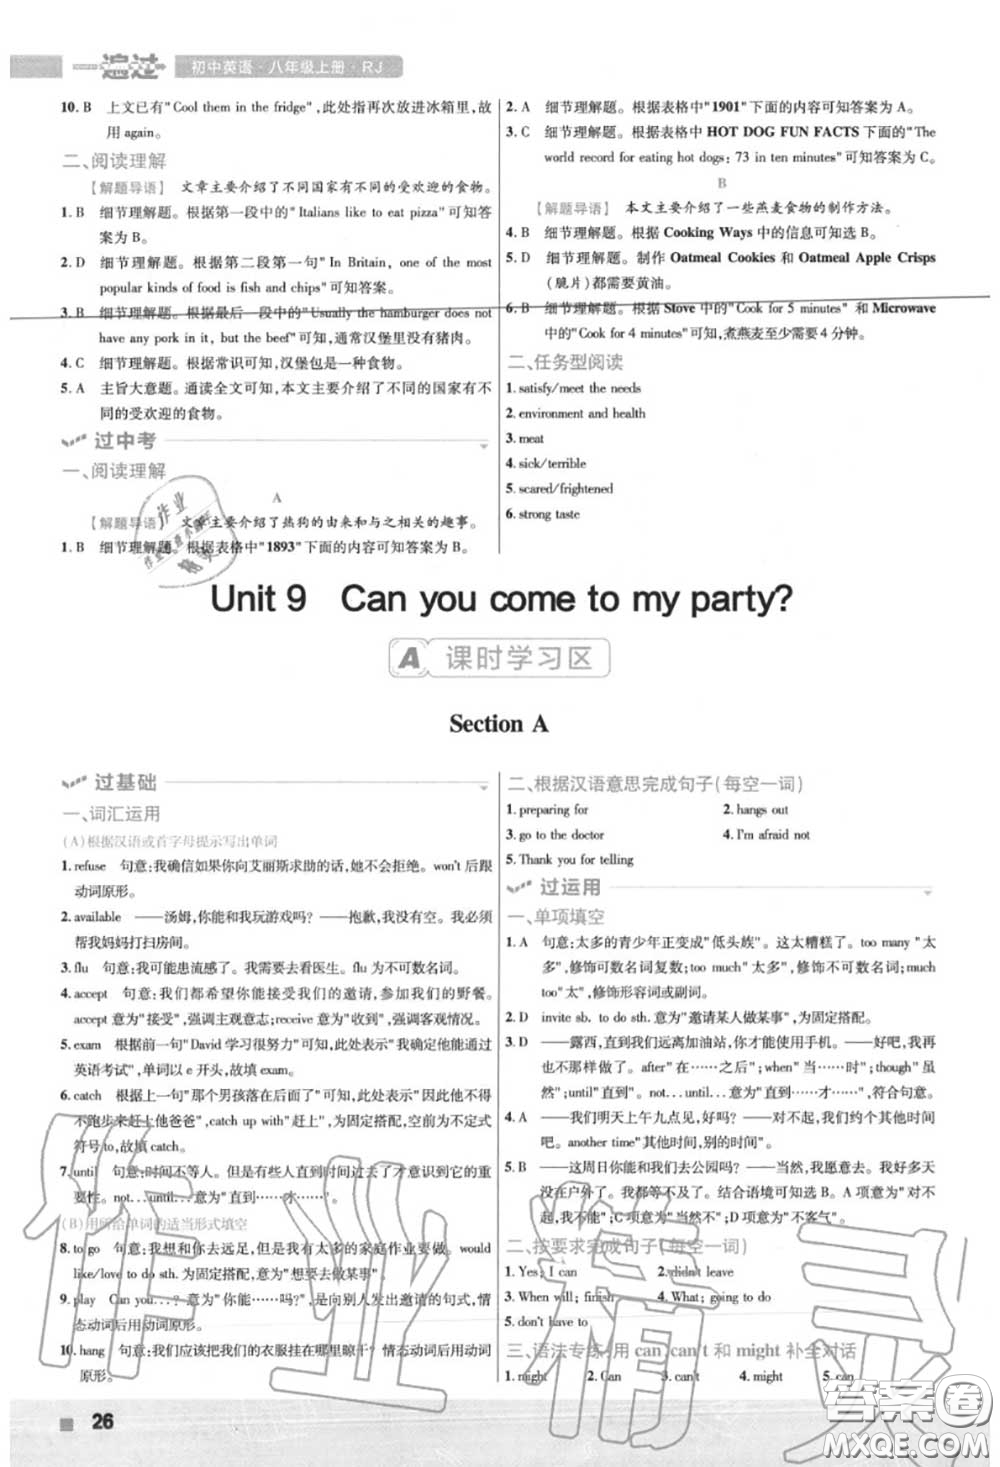 一遍过 初中英语·八年级上册·RJ
10. B 上文已有"Cool them in the fridge",此处指再次放进冰箱里,故
用 again。
二、阅读理解
【解题导语】 文章主要介绍了不同国家有不同的受欢迎的食物。
1. B 细节理解题。根据第一段中的"Italians like to eat pizza"可知答
案为 B。
2. D 细节理解题。根据第二段第一句"In Britain, one of the most
popular kinds of food is fish and chips"可知答案。
3. B 细节理解题。根据最后一段中的"Usually the hamburger does not
have any pork in it, but the beef"可知,通常汉堡里没有猪肉。
4. C 细节理解题。根据常识可知,汉堡包是一种食物。
5. A 主旨大意题。通读全文可知,本文主要介绍了不同的国家有不
同的受欢迎的食物。
过中考
一、阅读理解
A
【解题导语】 文章主要介绍了热狗的由来和与之相关的趣事。
1. B 细节理解题。根据表格中"1893"下面的内容可知答案为 B。
2. A 细节理解题。根据表格中"1901"下面的内容可知答案为 A。
3. C 细节理解题。根据表格中 HOT DOG FUN FACTS 下面的"The
world record for eating hot dogs: 73 in ten minutes"可知答案为 C。
B
【解题导语】 本文主要介绍了一些燕麦食物的制作方法。
4. B 细节理解题。根据 Cooking Ways 中的信息可知选 B。
5. D 细节理解题。制作 Oatmeal Cookies 和 Oatmeal Apple Crisps
(脆片)都需要黄油。
6. B 细节理解题。根据 Stove 中的"Cook for 5 minutes" 和 Microwave
中的"Cook for 4 minutes"可知,煮燕麦至少需要 4 分钟。
二、任务型阅读
1. satisfy/meet the needs
2. environment and health
3. meat
4. sick/terrible
5. scared/frightened
6. strong taste
Unit 9 Can you come to my party?
A 课时学习区
Section A
过基础
一、词汇运用
(A)根据汉语或首字母提示写出单词
1. refuse 句意:我确信如果你向艾丽斯求助的话,她不会拒绝。won't 后跟
动词原形。
2. available ——汤姆,你能和我玩游戏吗?——抱歉,我没有空。我必须
帮我妈妈打扫房间。
3. flu 句意:你可能患流感了。我需要去看医生。flu 为不可数名词。
4. accept 句意:我们都希望你能接受我们的邀请,参加我们的野餐。
accept 意为"接受",强调主观意志;receive 意为"收到",强调客观情况。
5. exam 根据前一句"David 学习很努力"可知,此处表示"我确定他能通过
英语考试",单词以 e 开头,故填 exam。
6. catch 根据上一句"那个男孩落在后面了"可知,此处表示"他得不
得不跑步来赶上他爸爸",catch up with"赶上",为固定搭配,空前为不定式
符号 to,故填 catch。
7. until 句意:时间不等人。但是一些人直到时间过去了才意识到它的重
要性。not...until...意为"直到……才……"。
(B)用所给单词的适当形式填空
8. to go 句意:我想和你去远足,但是我有太多的家庭作业要做。would
like/love to do sth. 为固定搭配,意为"想要做某事"。
9. play Can you...? 意为"你能……吗?",是向别人发出邀请的句式,情
态动词后用动词原形。
10. hang 句意:我们应该把我们的衣服挂在哪里晾干? 情态动词后用动词
原形。
二、根据汉语意思完成句子(每空一词)
1. preparing for 2. hangs out
3. go to the doctor 4. I'm afraid not
5. Thank you for telling
过运用
一、单项填空
1. A 句意:太多的青少年正变成"低头族"。这太糟糕了。too many "太
多",修饰可数名词复数;too much"太多",修饰不可数名词;much
too"太",修饰形容词或副词。
2. D invite sb. to do sth. 意为"邀请某人做某事",为固定搭配。
3. D ——露西,直到我们远离加油站,你才能使用手机。——好吧,我再
也不那样做了。after"在……之后";when"当……时";though"虽
然";until"直到"。not...until...意为"直到……才……",符合句意。
4. A ——我们明天上午九点见,好吗?——对不起,我们约个其他时间
吧。another time"其他时间,别的时间"。
5. B ——这周日你能和我们去公园吗?——当然,我愿意去。我好久
没在户外了。我等不及了。结合语境可知选 B。A 项意为"对不
起";C 项意为"当然不";D 项意为"不客气"。
二、按要求完成句子(每空一词)
1. Yes; I can 2. didn't leave
3. When will; finish 4. What; going to do
5. don't have to
三、语法专练:用 can, can't 和 might 补全对话
1. might 2. Can 3. can't 4. might 5. can
26
作业精灵
答案圈
MXQE.COM